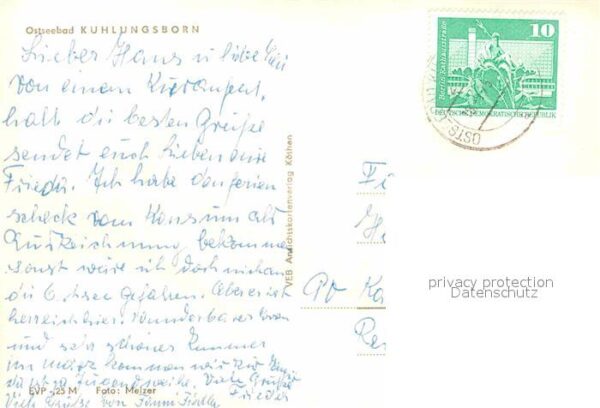 Ostseebad KÜHLUNGSBORN
Lieber Hans u liebe
von einem
halt die besten Grüße
sendet euch Lieben eure
Frieda. Ich habe den ferien
scheck vom Konsum als
Auszeichnung bekommen
sonst wäre ich doch nich an
die Ostsee gefahren. Aber es ist
herrlich hier. Wunderbares Essen
und sehr schönes Zimmer
im März kommen wir zur
Jugendweihe. Viele Grüße
Frieda
EVP -,25 M Foto: Melzer
Viele Grüße von
VEB Ansichtskartenverlag Köthen
10
Berlin Rathausstraße
DEUTSCHE DEMOKRATISCHE REPUBLIK
OSTS
privacy protection
Datenschutz